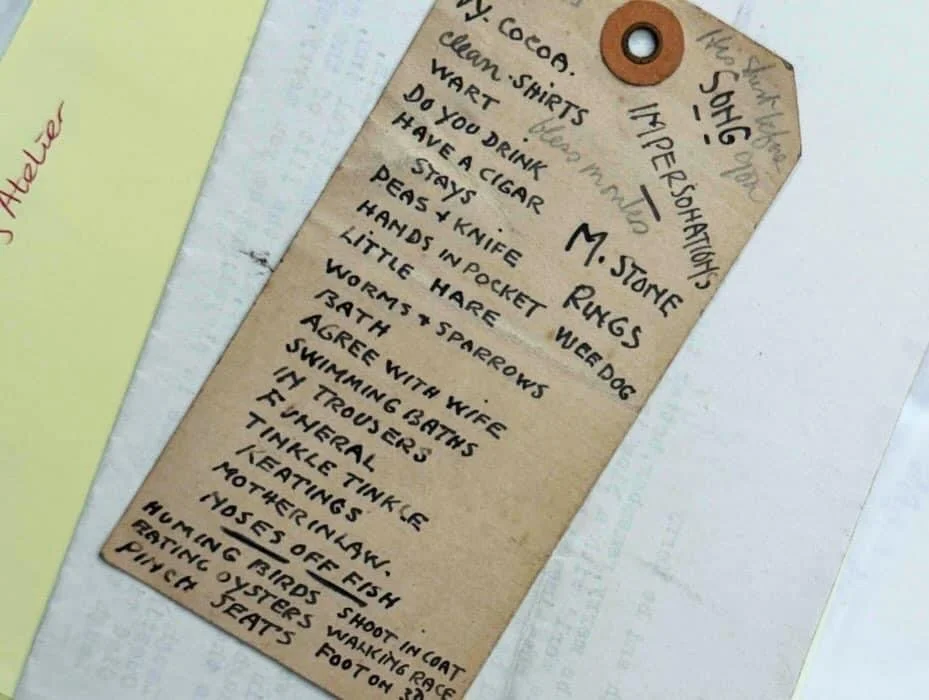 Y. COCOA.
clean. SHIRTS
WART
DO YOU DRINK
HAVE A CIGAR
STAYS
PEAS + KNIFE
HANDS IN POCKET
LITTLE HARE
WORMS + SPARROWS
BATH
AGREE WITH WIFE
SWIMMING BATHS
IN TROUSERS
FUNERAL
TINKLE TINKLE
KEATINGS
MOTHERINLAW.
NOSES OFF FISH
HUMING BIRDS SHOOT IN COAT
EATING OYSTERS WALKING RACE
PINCH SEATS FOOT ON
SONG
IMPERSONATIONS
M. STONE
RINGS
WEE DOG
bless
His before
you
Atelier